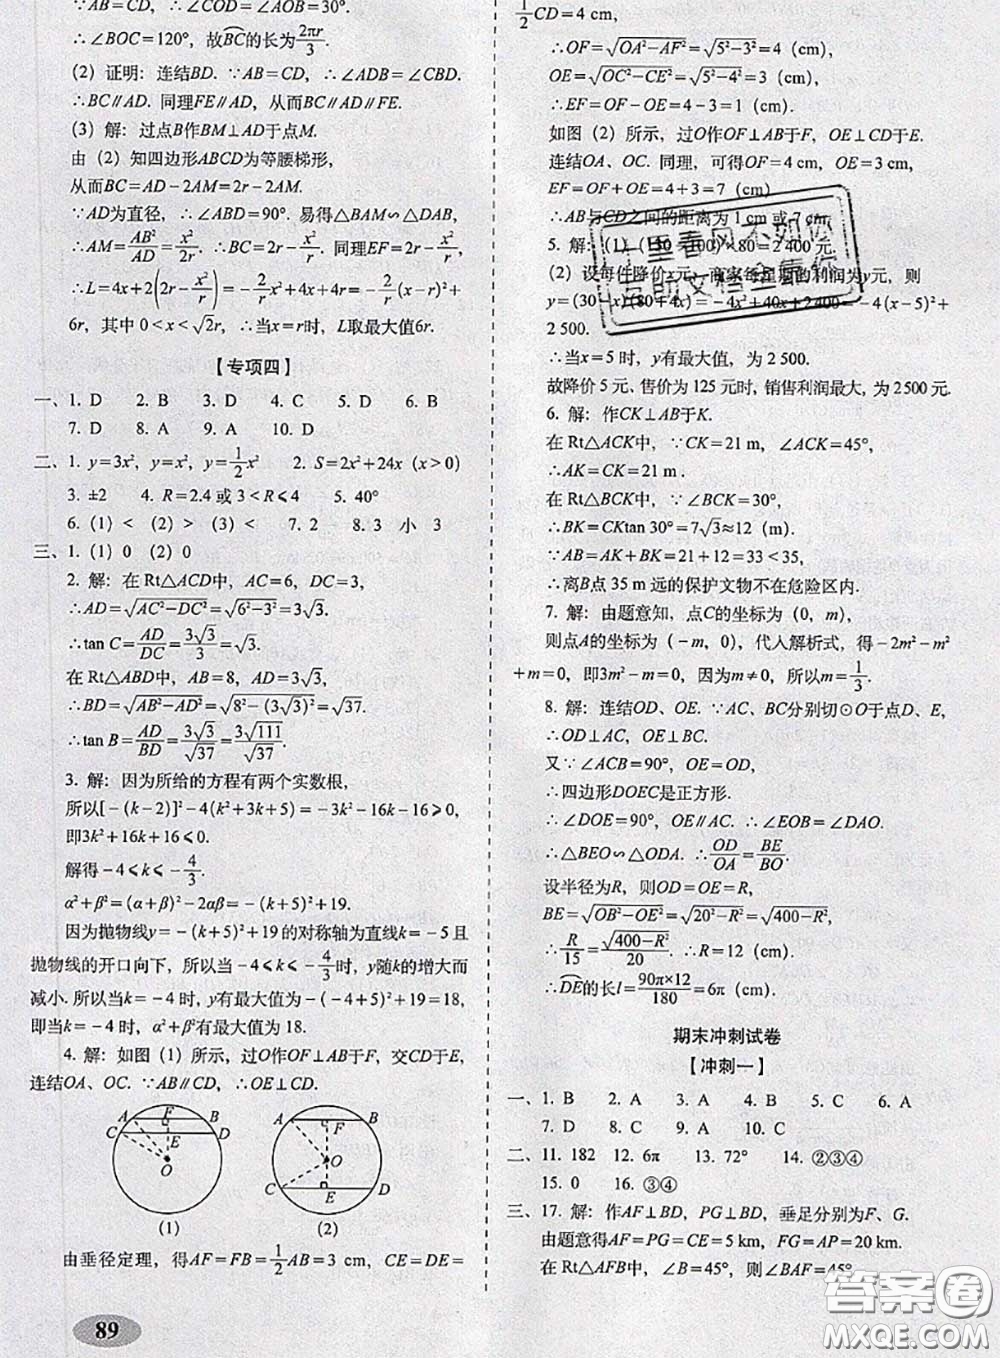 ∵AB=CD, ∴∠COD=∠AOB=30°.
∴∠BOC=120°, 故BC的长为2πr/3.
(2) 证明: 连结BD. ∵AB=CD, ∴∠ADB=∠CBD.
∴BC∥AD. 同理FE∥AD, 从而BC∥FE.
(3) 解: 过点B作BM⊥AD于点M.
由 (2) 知四边形ABCD为等腰梯形,
从而BC=AD-2AM=2r-2AM.
∵AD为直径, ∴∠ABD=90°. 易得△BAM∽△DAB,
∴AM=AB²/AD=x²/2r. ∴BC=2r-x²/r. 同理EF=2r-x²/r.
∴L=4x+2(2r-x²/r)=-2/r x²+4x+4r=-2/r(x-r)²+
6r, 其中 0<x<√2r, ∴当x=r时, L取最大值6r.
【专项四】
一、1. D 2. B 3. D 4. C 5. D 6. B
7. D 8. A 9. A 10. D
二、1. y=3x², y=x², y=1/2x² 2. S=2x²+24x (x>0)
3. ±2 4. R=2.4 或 3<R⩽4 5. 40°
6. (1) < (2) > (3) < 7. 2 8. 3 小 3
三、1. (1) 0 (2) 0
2. 解: 在 Rt△ACD中, AC=6, DC=3,
∴AD=√AC²-DC²=√6²-3²=3√3.
∴tan C=AD/DC=3√3/3=√3.
在 Rt△ABD中, AB=8, AD=3√3,
∴BD=√AB²-AD²=√8²-(3√3)²=√37.
∴tan B=AD/BD=3√3/√37=3√111/√37.
3. 解: 因为所给的方程有两个实数根,
所以[-(k-2)]²-4(k²+3k+5)=-3k²-16k-16⩾0,
即3k²+16k+16⩽0.
解得-4⩽k⩽-4/3.
α²+β²=(α+β)²-2αβ=-(k+5)²+19.
因为抛物线y=-(k+5)²+19 的对称轴为直线k=-5 且
抛物线的开口向下, 所以当-4⩽k⩽-4/3时, y随k的增大而
减小. 所以当k=-4 时, y有最大值为-(-4+5)²+19=18,
即当k=-4 时, α²+β²有最大值为 18.
4. 解: 如图 (1) 所示, 过O作OF⊥AB于F, 交CD于E,
连结OA、OC. ∵AB∥CD, ∴OE⊥CD.
A F B C E D O
(1)
A F B O C E D
(2)
由垂径定理, 得AF=FB=1/2AB=3 cm, CE=DE=
89
1/2CD=4 cm,
∴OF=√OA²-AF²=√5²-3²=4 (cm),
OE=√OC²-CE²=√5²-4²=3 (cm).
∴EF=OF-OE=4-3=1 (cm).
如图 (2) 所示, 过O作OF⊥AB于F, OE⊥CD于E.
连结OA、OC. 同理, 可得OF=4 cm, OE=3 cm,
EF=OF+OE=4+3=7 (cm)
∴AB与CD之间的距离为 1 cm 或 7 cm.
5. 解: (1) (130-100)×80=2 400 元.
(2) 设每件降价x元, 商家每星期的利润为y元, 则
y=(30-x)(80+4x)=-4x²+40x+2400=-4(x-5)²+
2 500.
∴当x=5 时, y有最大值, 为 2 500.
故降价 5 元, 售价为 125 元时, 销售利润最大, 为 2 500 元.
6. 解: 作CK⊥AB于K.
在 Rt△ACK中, ∵CK=21 m, ∠ACK=45°,
∴AK=CK=21 m.
在 Rt△BCK中, ∵∠BCK=30°,
∴BK=CKtan 30°=7√3≈12 (m).
∵AB=AK+BK=21+12=33<35,
∴离B点 35 m 远的保护文物不在危险区内.
7. 解: 由题意知, 点C的坐标为 (0, m),
则点A的坐标为 (-m, 0), 代入解析式, 得-2m²-m²
+m=0, 即3m²-m=0, 因为m≠0, 所以m=1/3.
8. 解: 连结OD、OE. ∵AC、BC分别切⊙O于点D、E,
∴OD⊥AC, OE⊥BC.
又∵∠ACB=90°, OE=OD,
∴四边形DOEC是正方形.
∴∠DOE=90°, OE∥AC. ∴∠EOB=∠DAO.
∴△BEO∽△ODA. ∴OD/OA=BE/BO.
设半径为R, 则OD=OE=R,
BE=√OB²-OE²=√20²-R²=√400-R².
∴R/15=√400-R²/20. ∴R=12 (cm).
∴DE的长l=90π×12/180=6π (cm).
期末冲刺试卷
【冲刺一】
一、1. B 2. A 3. A 4. B 5. C 6. A
7. D 8. C 9. A 10. C
二、11. 182 12. 6π 13. 72° 14. ②③④
15. 0 16. ③④
三、17. 解: 作AF⊥BD, PG⊥BD, 垂足分别为F、G.
由题意得AF=PG=CE=5 km, FG=AP=20 km.
在 Rt△AFB中, ∠B=45°, 则∠BAF=45°
答案圈
MXQE.COM